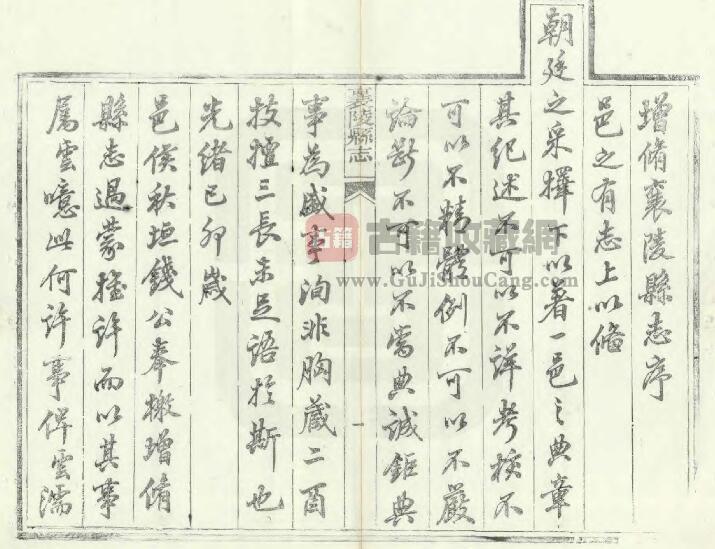 增脩襄陵縣志序
邑之有志上以脩
朝廷之采擇下以著一邑之典章
其紀述不可以不詳考核不
可以不精體例不可以不嚴
論斷不可以不當典誠鉅典
襄陵縣志
一
事為盛事洵非胸藏二酉
技擅三長未足語於斯也
光緒己卯歲
邑侯秋垣錢公奉檄增脩
縣志過蒙推許而以其事
屬雲噫此何許事俾雲濡
古籍 古籍收藏網
www.GuJiShouCang.com